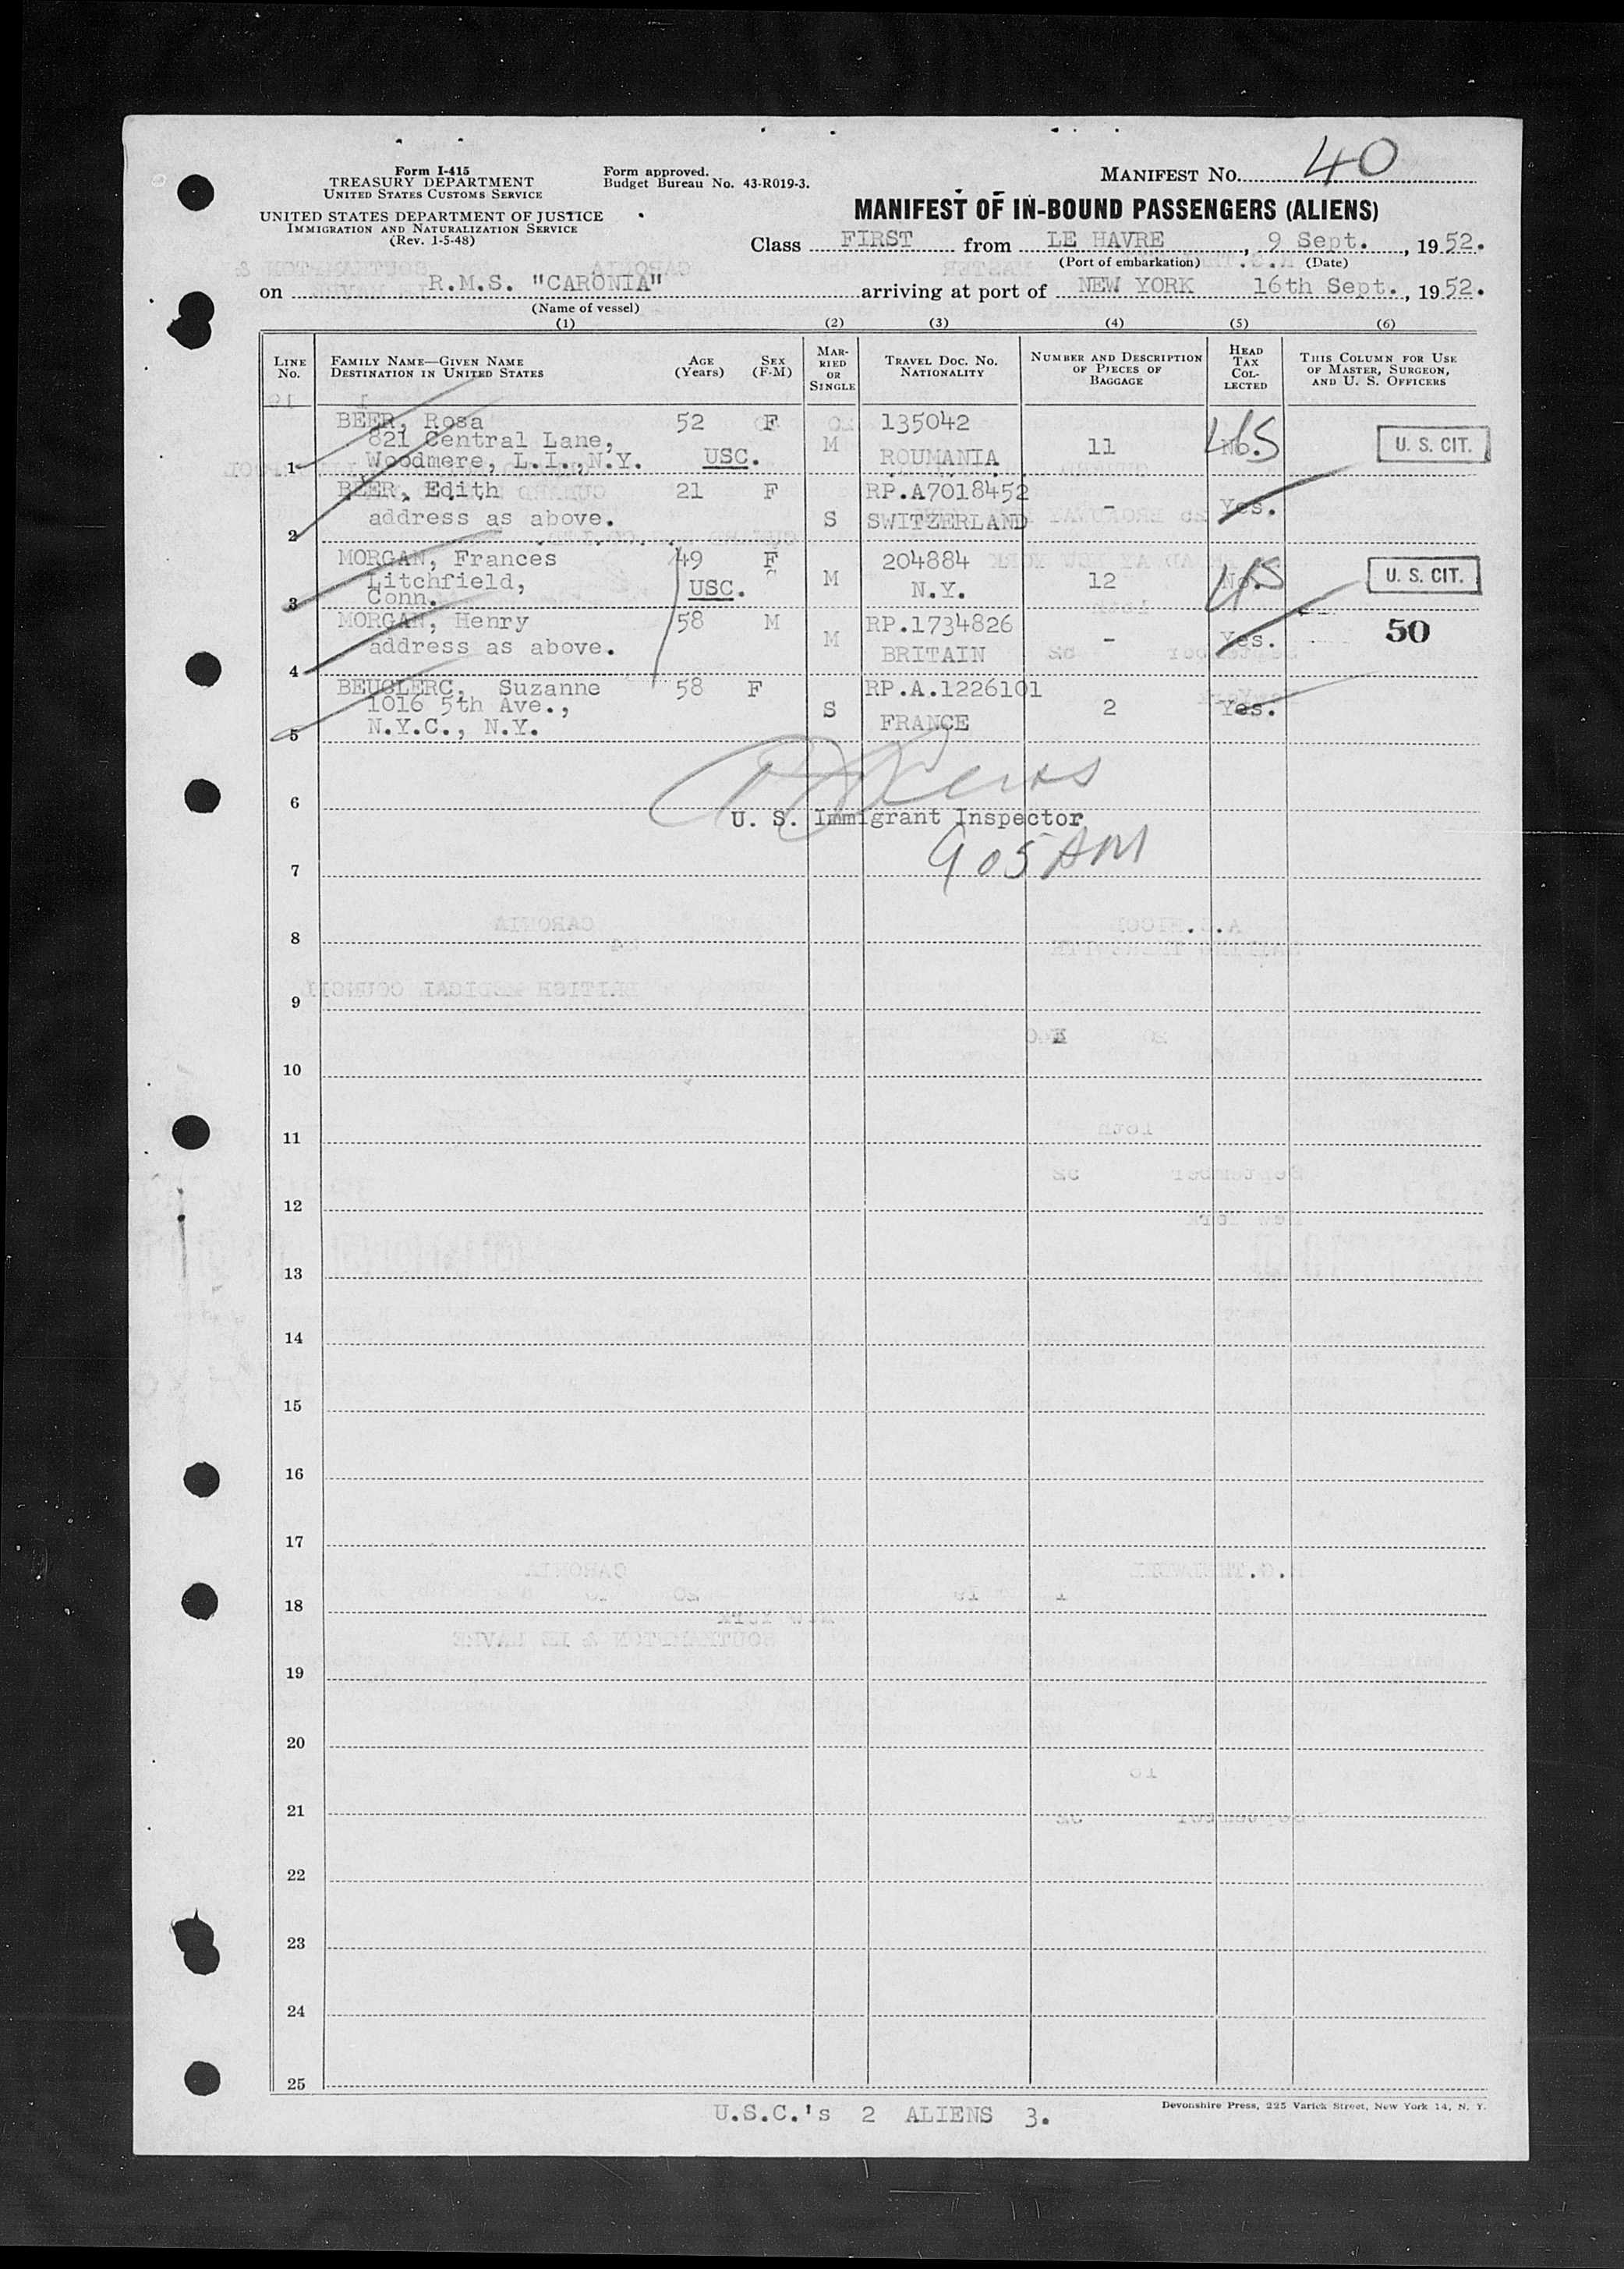 Form I-415
TREASURY DEPARTMENT
UNITED STATES CUSTOMS SERVICE
UNITED STATES DEPARTMENT OF JUSTICE
IMMIGRATION AND NATURALIZATION SERVICE
(Rev. 1-5-48)
Form approved.
Budget Bureau No. 43-R019-3.
MANIFEST NO. 40
MANIFEST OF IN-BOUND PASSENGERS (ALIENS)
Class FIRST from LE HAVRE, 9 Sept., 1952.
(Port of embarkation) (Date)
on R.M.S. "CARONIA" arriving at port of NEW YORK 16th Sept., 1952.
(Name of vessel)
(1) (2) (3) (4) (5) (6)
LINE NO. FAMILY NAME—GIVEN NAME DESTINATION IN UNITED STATES AGE (Years) SEX (F-M) MARRIED OR SINGLE TRAVEL DOC. NO. NATIONALITY NUMBER AND DESCRIPTION OF PIECES OF BAGGAGE HEAD TAX COLLECTED THIS COLUMN FOR USE OF MASTER, SURGEON, AND U. S. OFFICERS
BEER, Rosa 52 F 135042
821 Central Lane, M 11 No. U. S. CIT.
1 Woodmere, L.I.,N.Y. USC. ROUMANIA
BEER, Edith 21 F RP.A7018452
address as above. S SWITZERLAND - Yes.
2
MORGAN, Frances 49 F 204884
Litchfield, M 12 No. U. S. CIT.
3 Conn. USC. N.Y.
MORGAN, Henry 58 M RP.1734826 50
address as above. M BRITAIN - Yes.
4
BEUGLERC, Suzanne 58 F RP.A.1226101
1016 5th Ave., S 2 Yes.
5 N.Y.C., N.Y. FRANCE
6
U. S. Immigrant Inspector
905 AM
7
8
9
10
11
12
13
14
15
16
17
18
19
20
21
22
23
24
25
U.S.C.'s 2 ALIENS 3.
Devonshire Press, 225 Varick Street, New York 14, N. Y.